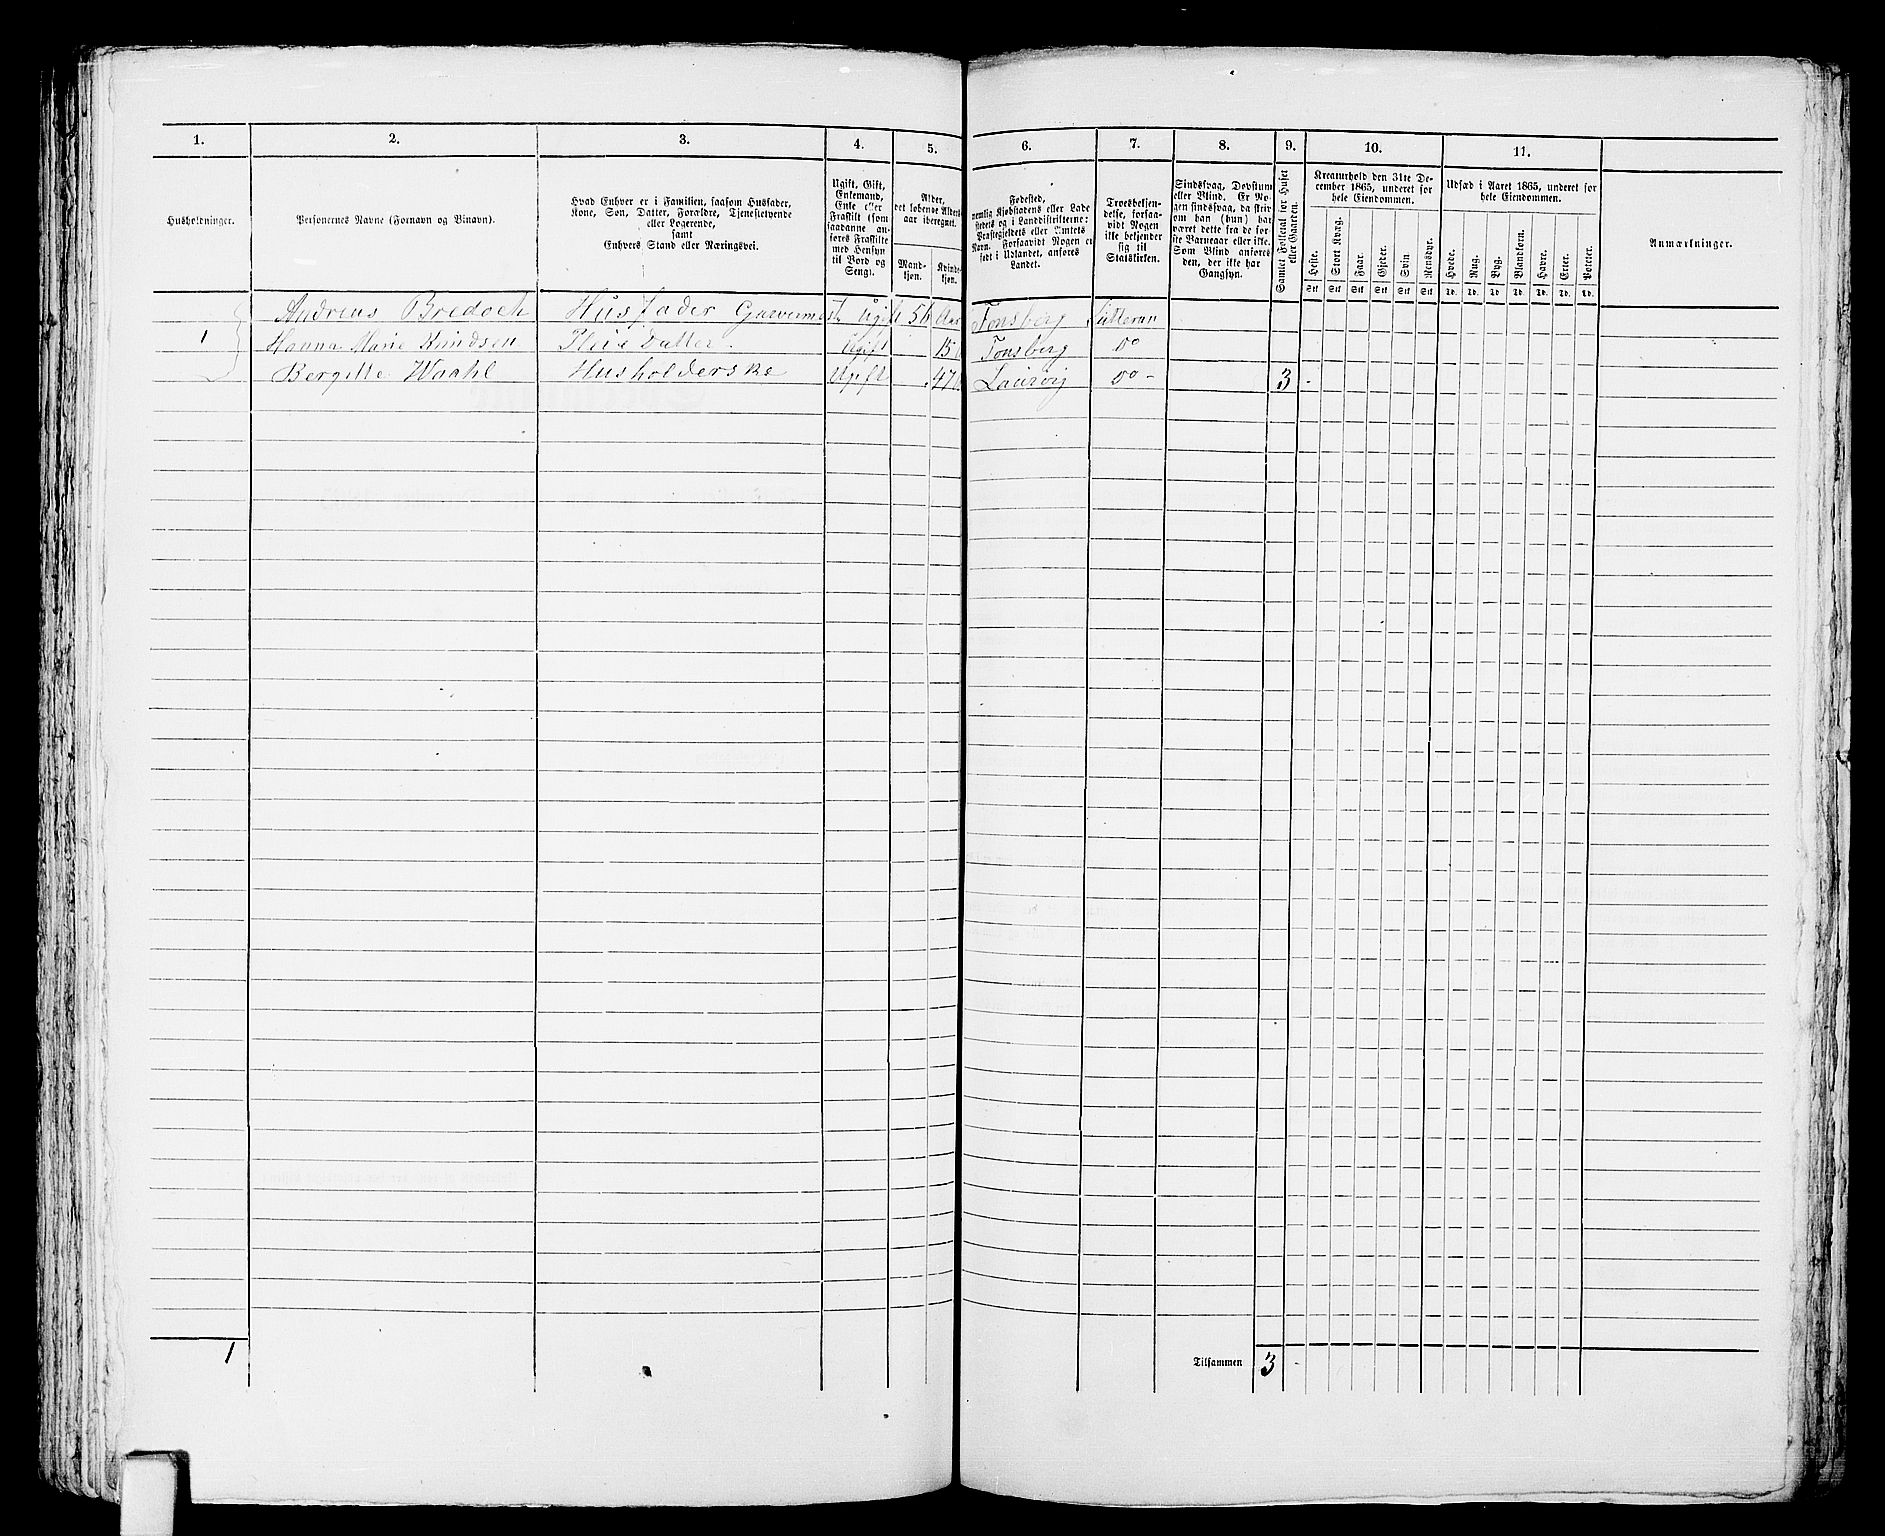 1. 2. 3. 4. 5. 6. 7. 8. 9. 10. 11.
Husholdninger.
Personernes Navne (Fornavn og Binavn).
Hvad Enhver er i Familien, saasom Husfader,
Kone, Søn, Datter, Forældre, Tjenestetyende
eller Logerende,
samt
Enhvers Stand eller Næringsvei.
Ugift, Gift,
Enkemand,
Enke eller
Fraskilt (som
saadanne an-
føres Fraskilte
med Hensyn
til Bord og
Seng).
Alder,
det løbende Alders-
aar iberegnet.
Mand-
kjøn.
Kvinde-
kjøn.
Fødested,
nemlig Kjøbstadens eller Lade
stedets og i Landdistrikterne:
Præstegjeldets eller Amtets
Navn. Forsaavidt Nogen er
født i Udlandet, anføres
Landet.
Troesbekjen-
delse, forsaa-
vidt Nogen
ikke bekjender
sig til
Statskirken.
Sindssvag, Døvstum
eller Blind. Er No-
gen sindssvag, da skriv
om han (hun) har
været dette fra de før-
ste Barneaar eller ikke.
Som Blind anføres
den, der ikke har
Gangsyn.
Samlet Folketal for Huset
eller Gaarden.
Kreaturhold den 31te De-
cember 1865, underet for
hele Eiendommen.
Heste. Stort Kvæg. Faar. Gjeder. Svin Rensdyr.
Stk Stk Stk Stk Stk Stk
Udsæd i Aaret 1865, underet for
hele Eiendommen.
Hvede. Rug. Byg. Blandkorn. Havre. Erter. Poteter.
Td. Td. Td Td. Td. Td. Td.
Anmærkninger.
Andreas Bredoch Husfader Garvermest. Ugift 56 Aar Tonsberg Lutteran
1 Hanna Marie Knudsen Pleie Datter. Ugift 15 Tonsberg Do
Bergitte Waahl Husholderske Ugift 47 Laurvig Do - 3
1
Tilsammen 3